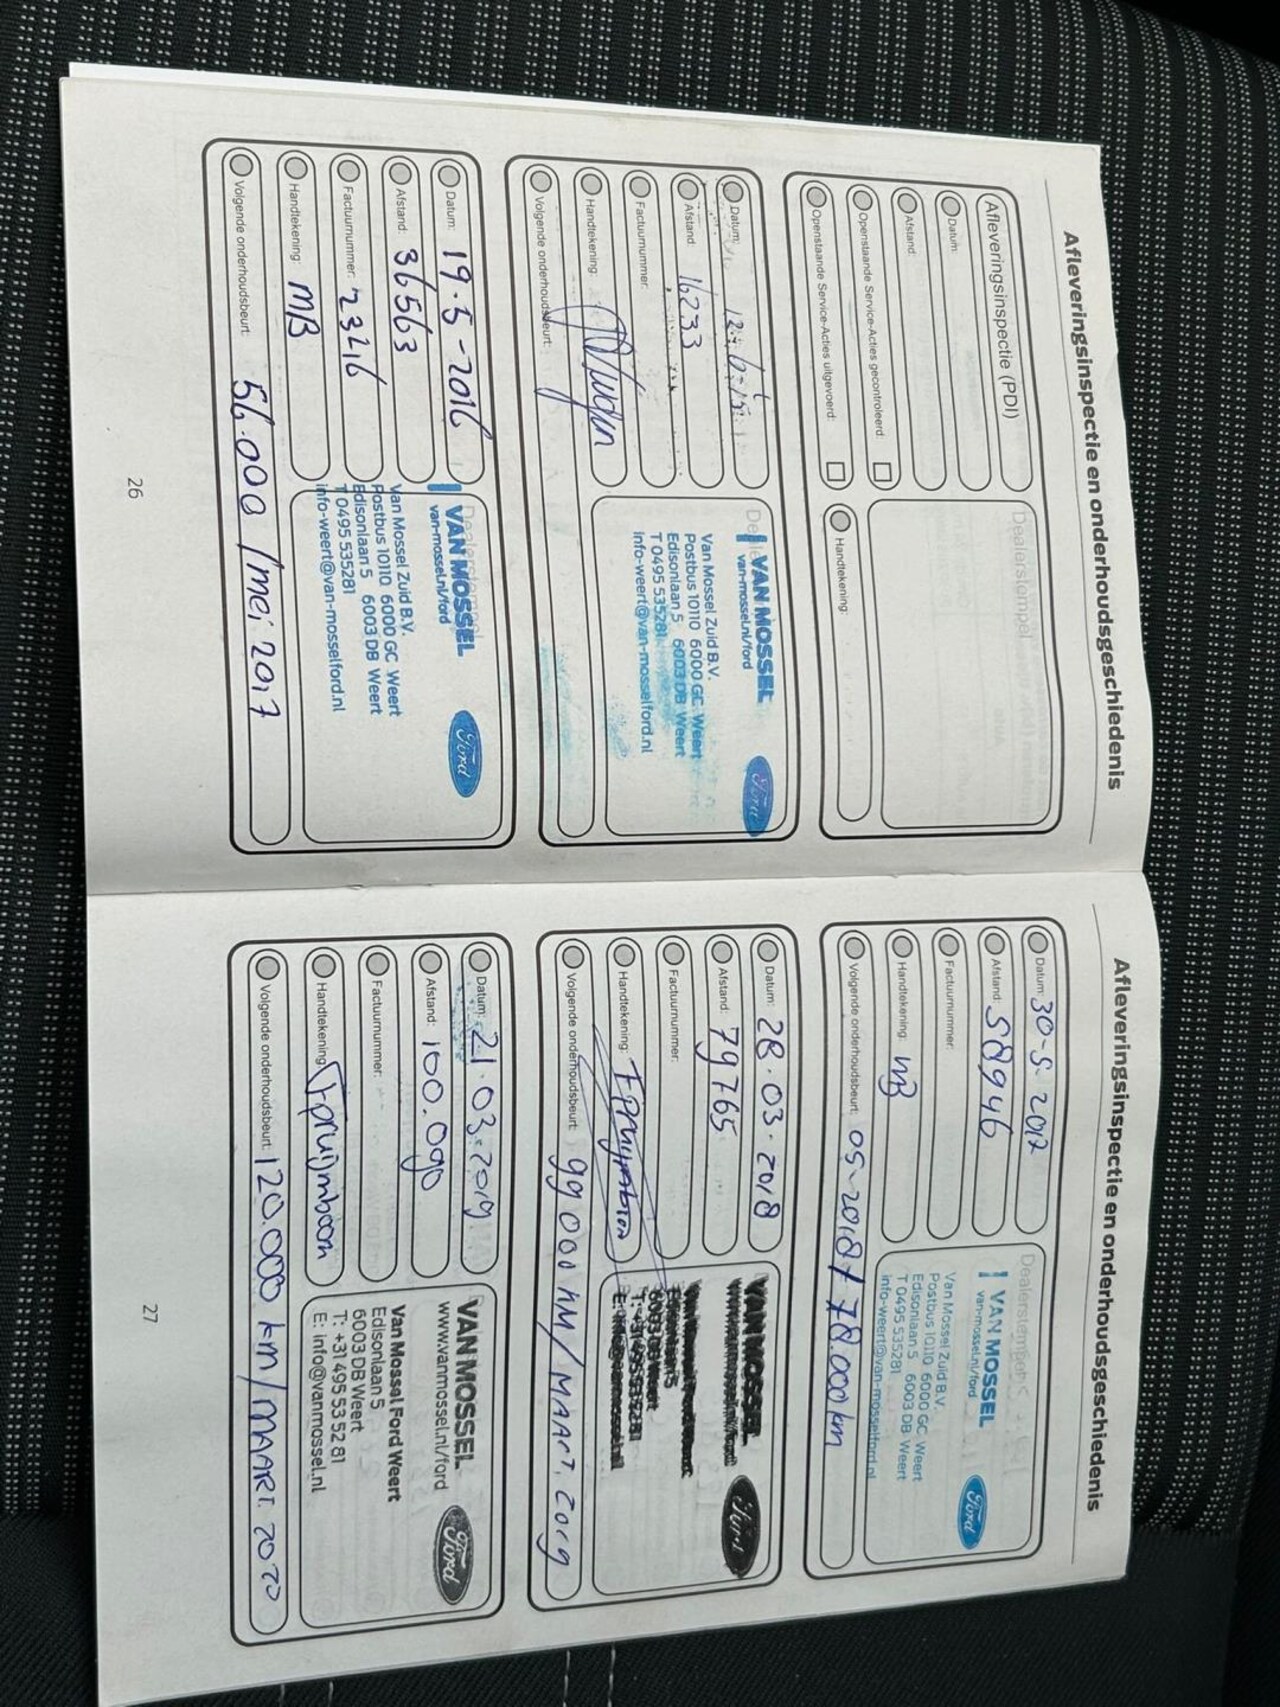 Afleveringsinspectie en onderhoudsgeschiedenis
Afleveringsinspectie (PDI)
Datum:
Afstand:
Openstaande Service-Acties gecontroleerd:
Openstaande Service-Acties uitgevoerd:
Dealerstempel
Handtekening:
Datum:
Afstand: 16233
Factuurnummer:
Handtekening:
Volgende onderhoudsbeurt:
VAN MOSSEL
van-mossel.nl/ford
Van Mossel Zuid B.V.
Postbus 10110 6000 GC Weert
Edisonlaan 5 6003 DB Weert
T 0495 535281
info-weert@van-mosselford.nl
Ford
Datum: 19-5-2016
Afstand: 36563
Factuurnummer: 23216
Handtekening: MB
Volgende onderhoudsbeurt: 56.000 / mei 2017
Dealerstempel
VAN MOSSEL
van-mossel.nl/ford
Van Mossel Zuid B.V.
Postbus 10110 6000 GC Weert
Edisonlaan 5 6003 DB Weert
T 0495 535281
info-weert@van-mosselford.nl
Ford
26
Afleveringsinspectie en onderhoudsgeschiedenis
Datum: 30-5-2017
Afstand: 58946
Factuurnummer:
Handtekening: MB
Volgende onderhoudsbeurt: 05-2018 / 78.000 km
Dealerstempel
VAN MOSSEL
van-mossel.nl/ford
Van Mossel Zuid B.V.
Postbus 10110 6000 GC Weert
Edisonlaan 5 6003 DB Weert
T 0495 535281
info-weert@van-mosselford.nl
Ford
Datum: 28.03.2018
Afstand: 79765
Factuurnummer:
Handtekening:
Volgende onderhoudsbeurt: 99000 KM/MAART. 2019
VAN MOSSEL
Ford
Datum: 21.03.2019
Afstand: 100.090
Factuurnummer:
Handtekening: Fpruijmboom
Volgende onderhoudsbeurt: 120.000 km/MAART. 2020
VAN MOSSEL
www.vanmossel.nl/ford
Van Mossel Ford Weert
Edisonlaan 5
6003 DB Weert
T: +31 495 53 52 81
E: info@vanmossel.nl
Ford
27